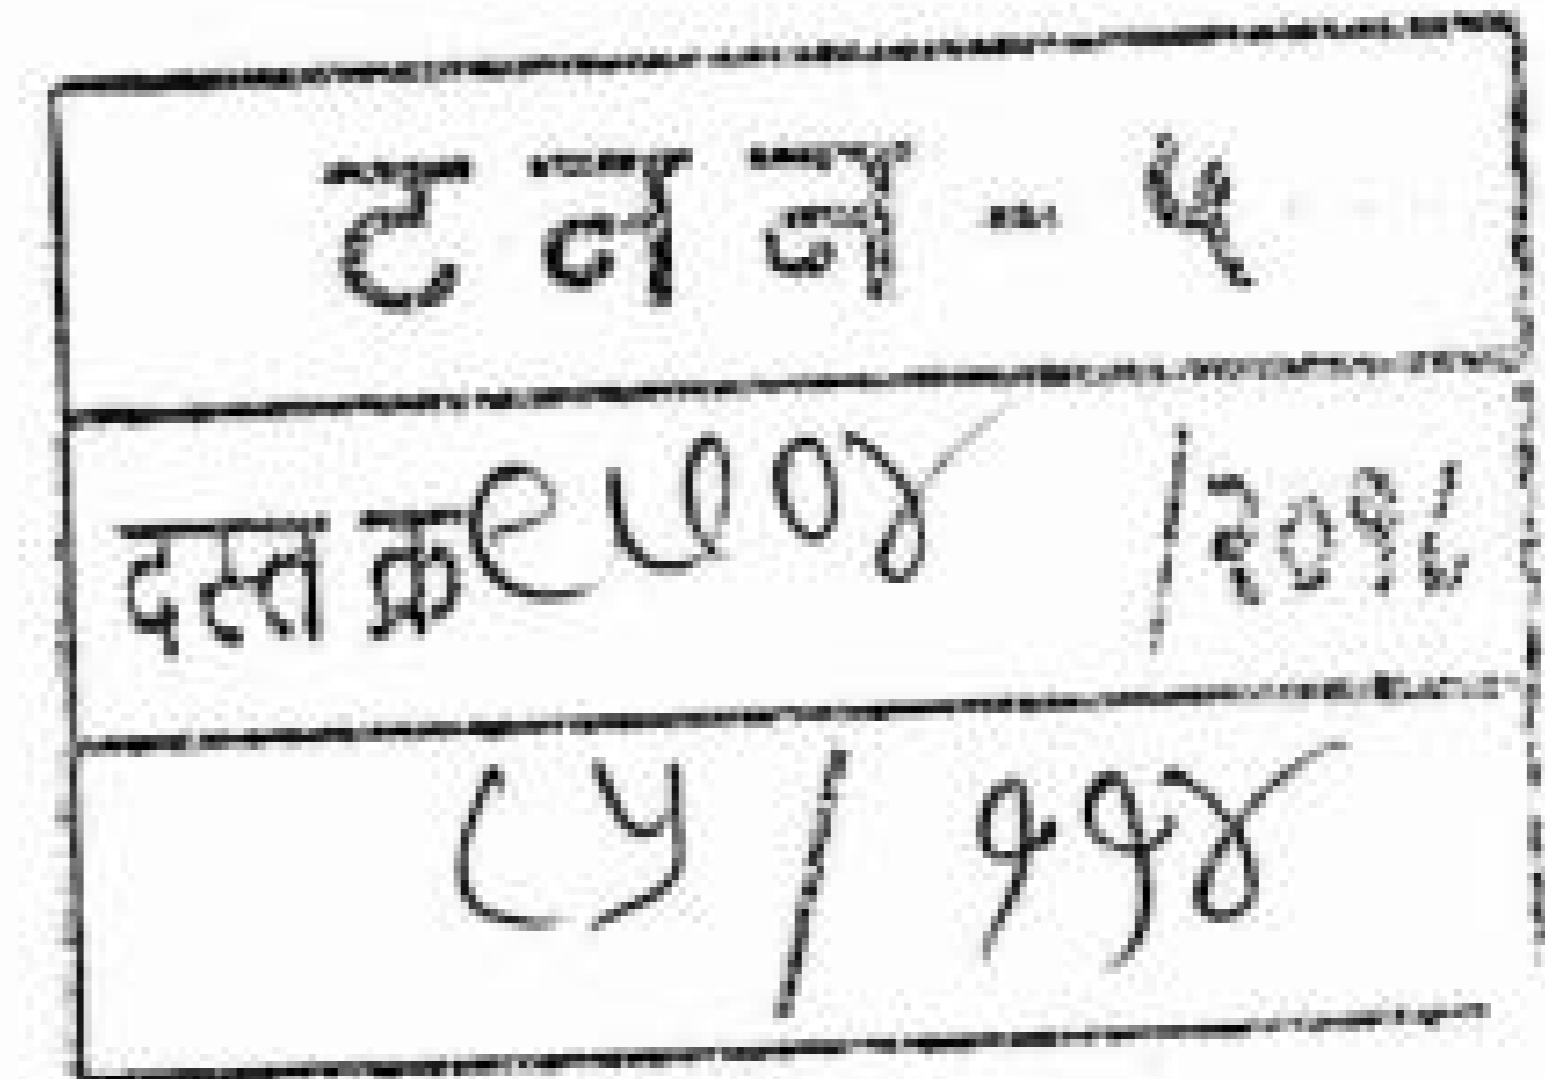 ट न न - ५
दस्त क्र ९५०४ /२०१८
८५ / ११४